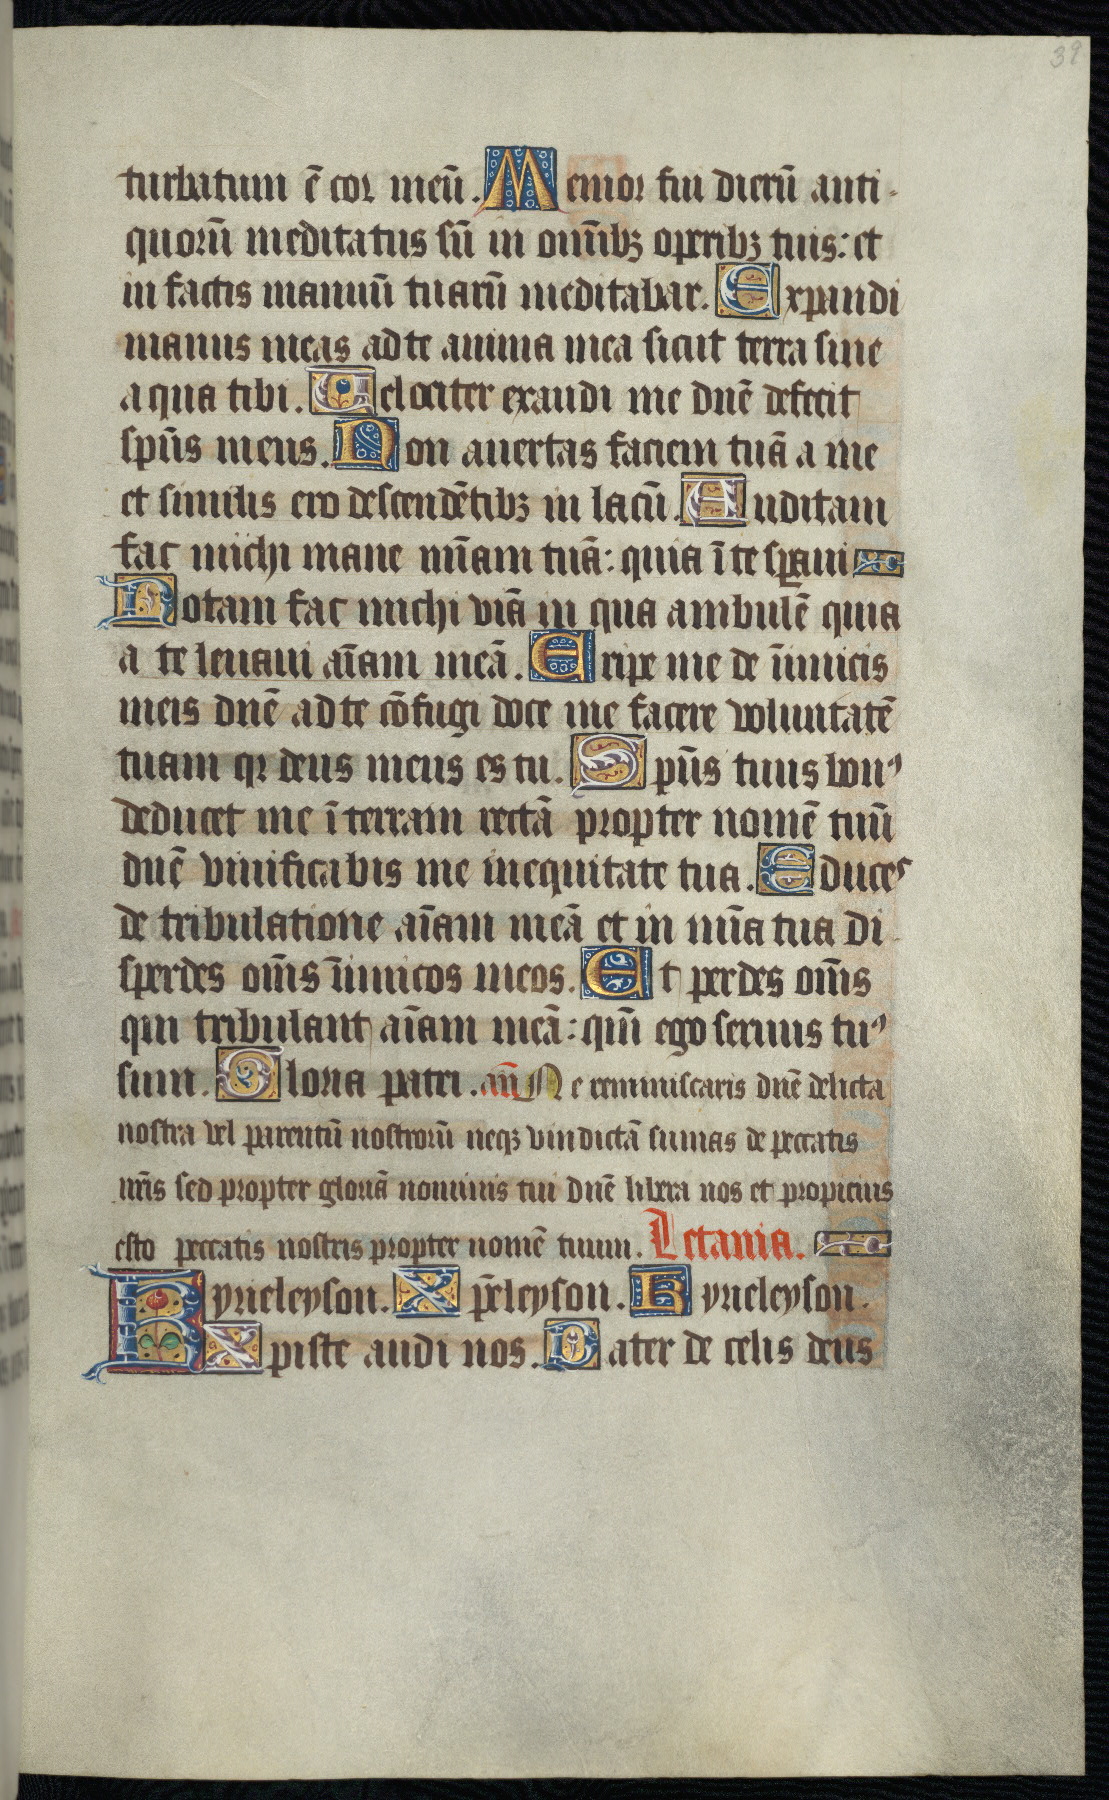 39
turbatum ē cor meū. Memor fui dierū anti-
quorū meditatus sū in om̄ibꝫ operibꝫ tuis: et
in factis manuū tuarū meditabar. Expandi
manus meas ad te anima mea sicut terra sine
aqua tibi. Velociter exaudi me dn̄e defecit
sp̄us meus. Non auertas faciem tuā a me
et similis ero descendētibꝫ in lacū. Auditam
fac michi mane mīam tuā: quia ī te sꝑaui
Notam fac michi viā in qua ambulē quia
a te leuaui aīam meā. Eripe me de īimicis
meis dn̄e ad te cōfugi doce me facere voluntatē
tuam qꝛ deus meus es tu. Sp̄us tuus bonꝰ
deducet me ī terram rectā propter nomē tuū
dn̄e viuificabis me inequitate tua. Educes
de tribulatione aīam meā et in mīa tua di-
sperdes om̄s īimicos meos. Et perdes om̄s
qui tribulant aīam meā: qm̄ ego seruus tuꝰ
sum. Gloria patri. an̄ Ne reminiscaris dn̄e delicta
nostra vel parentū nostrorū neqꝫ vindictā sumas de peccatis
nr̄is sed propter gloriā nominis tui dn̄e libera nos et propicius
esto peccatis nostris propter nomē tuum. Letania.
Kyrieleyson. Xp̄eleyson. Kyrieleyson.
Xpiste audi nos. Pater de celis deus